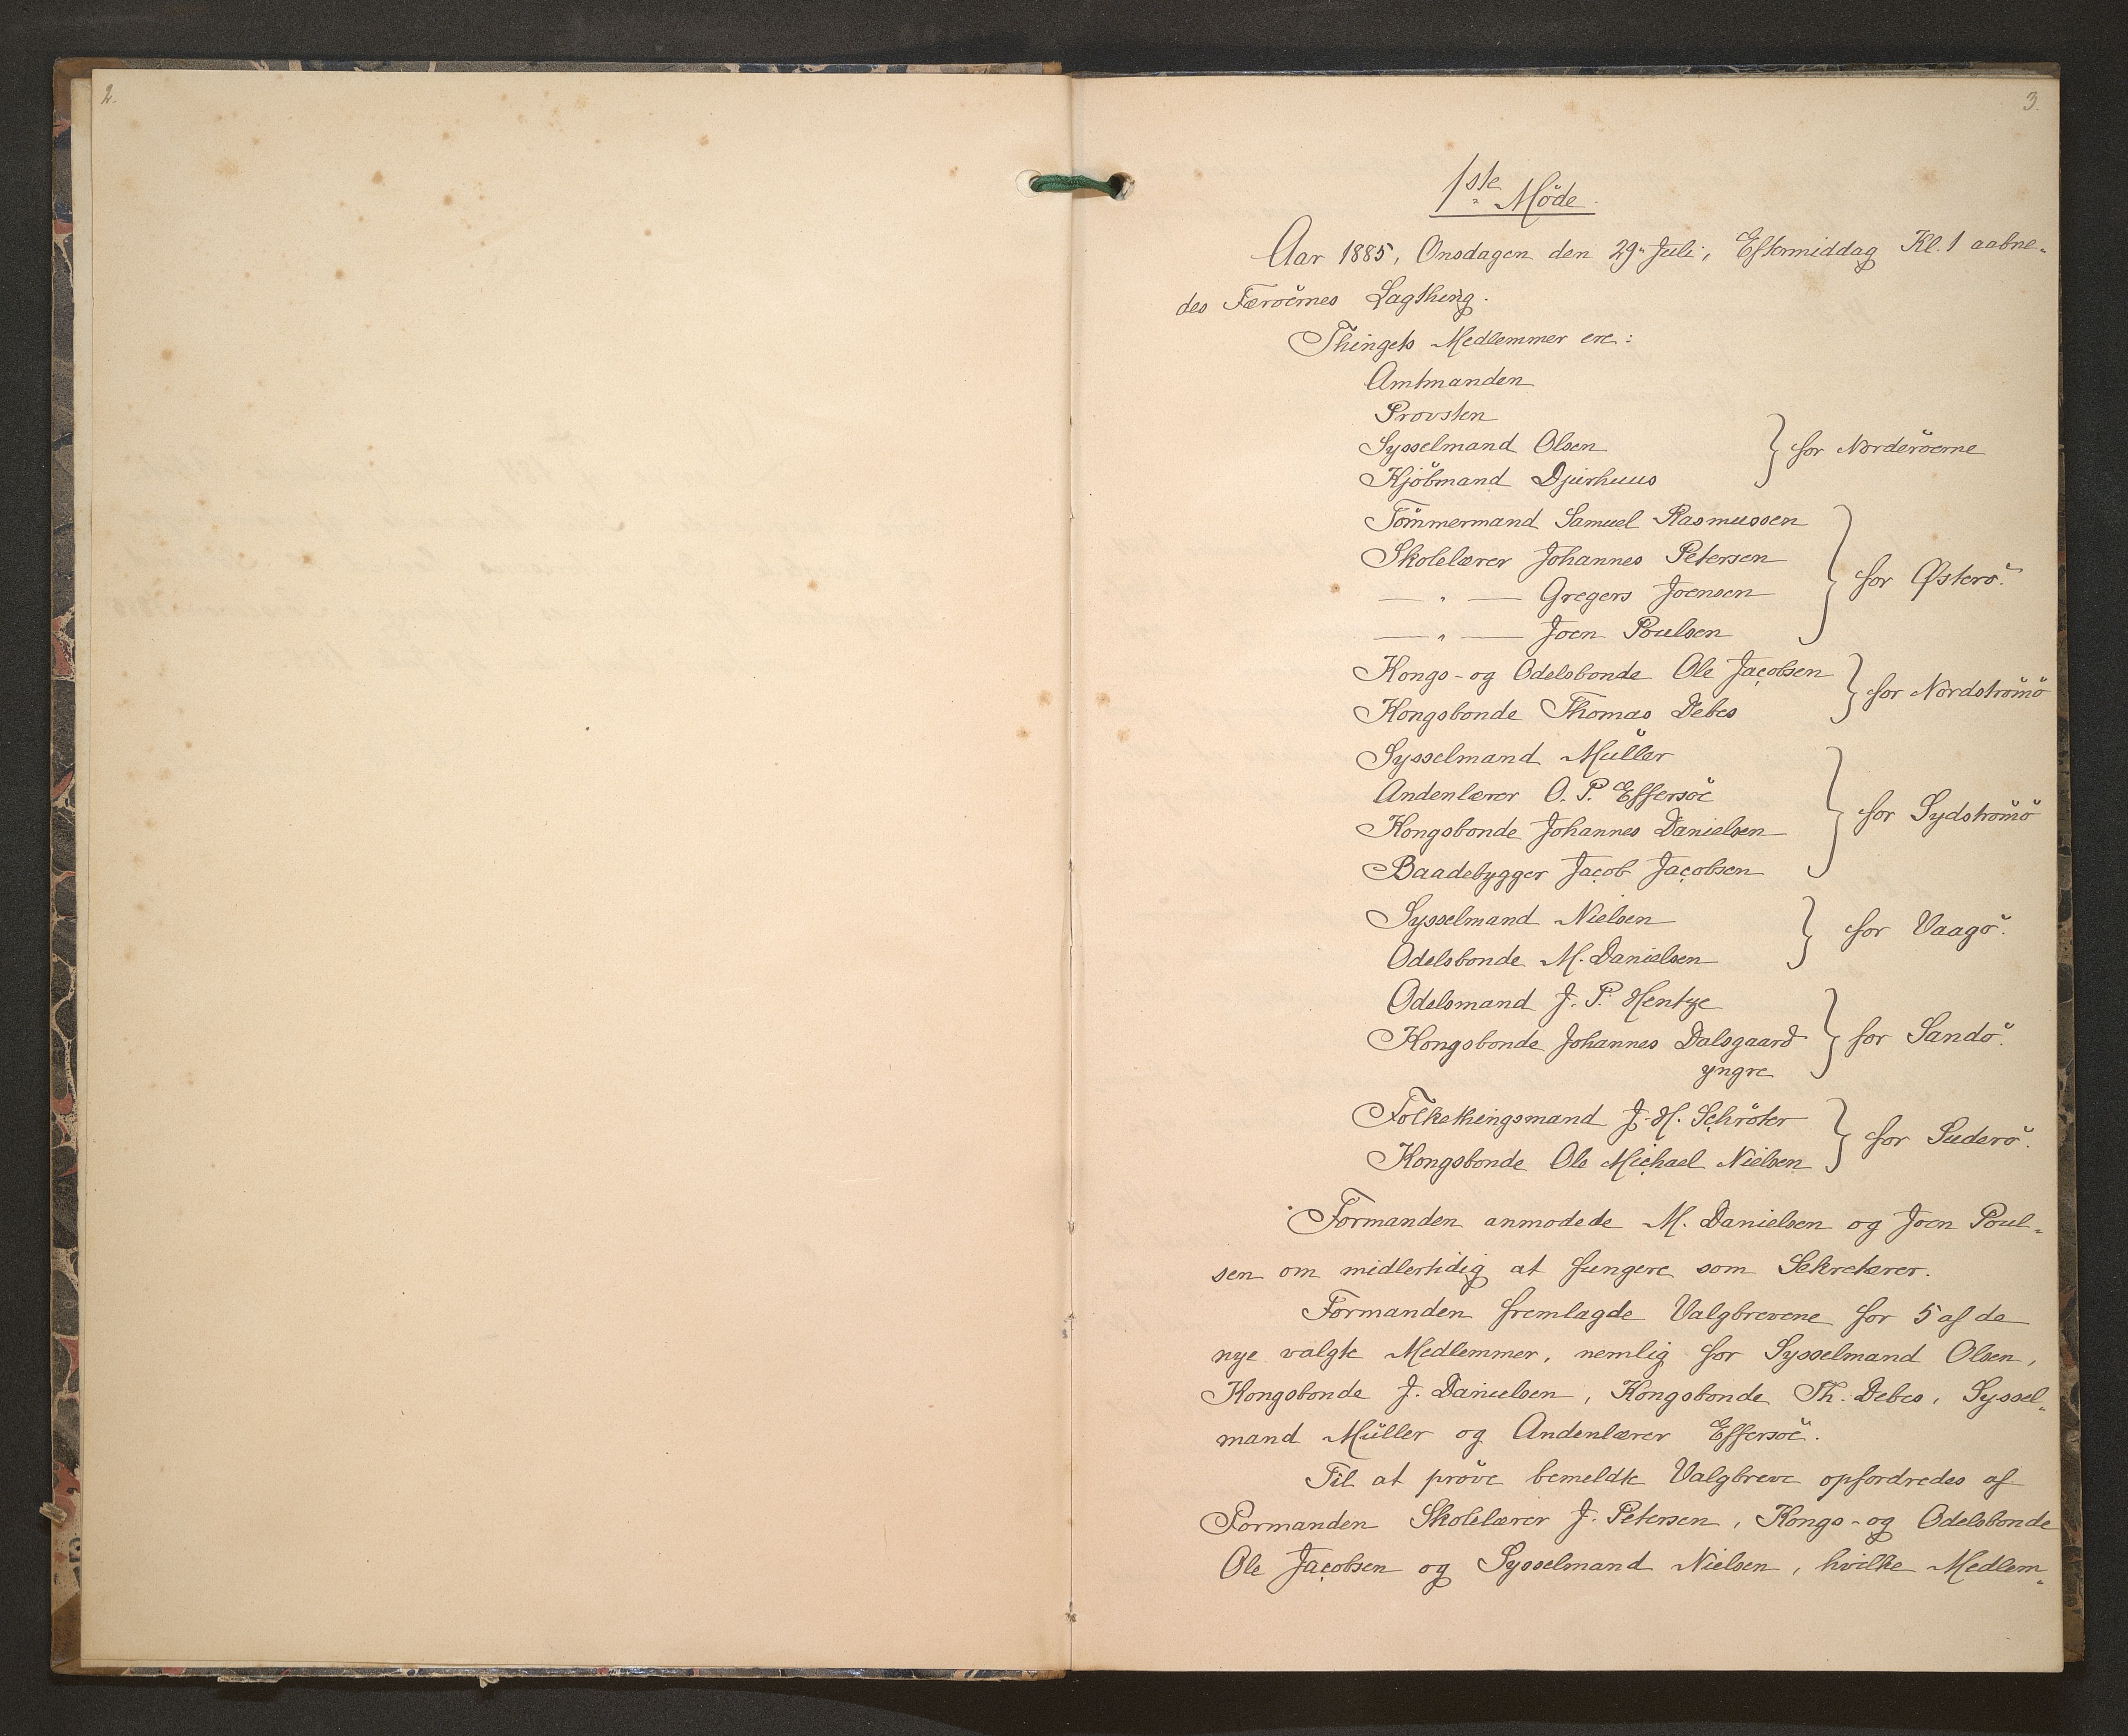 2.
3.
1ste Möde.
Aar 1885, Onsdagen den 29. Juli, Eftermiddag Kl. 1 aabne-
des Færöernes Lagthing.
Thingets Medlemmer ere:
Amtmanden
Provsten
Sysselmand Olsen
Kjöbmand Djurhuus
} for Norderöerne
Tömmermand Samuel Rasmussen
Skolelærer Johannes Petersen
— " — Gregers Joensen
— " — Joen Poulsen
} for Østerö.
Kongs- og Odelsbonde Ole Jacobsen
Kongsbonde Thomas Debes
} for Nordströmö
Sysselmand Müller
Andenlærer O. P. Effersöe
Kongsbonde Johannes Danielsen
Baadebygger Jacob Jacobsen
} for Sydströmö
Sysselmand Nielsen
Odelsbonde M. Danielsen
} for Vaagö.
Odelsmand J. P. Hentze
Kongsbonde Johannes Dalsgaard
yngre
} for Sandö.
Folkethingsmand J. H. Schröter
Kongsbonde Ole Michael Nielsen
} for Suderö.
Formanden anmodede M. Danielsen og Joen Poul-
sen om midlertidig at fungere som Sekretærer.
Formanden fremlagde Valgbrevene for 5 af de
nye valgte Medlemmer, nemlig for Sysselmand Olsen,
Kongsbonde J. Danielsen, Kongsbonde Th. Debes, Syssel-
mand Müller og Andenlærer Effersöe.
Til at pröve bemeldte Valgbreve opfordredes af
Formanden Skolelærer J. Petersen, Kongs- og Odelsbonde
Ole Jacobsen og Sysselmand Nielsen, hvilke Medlem-